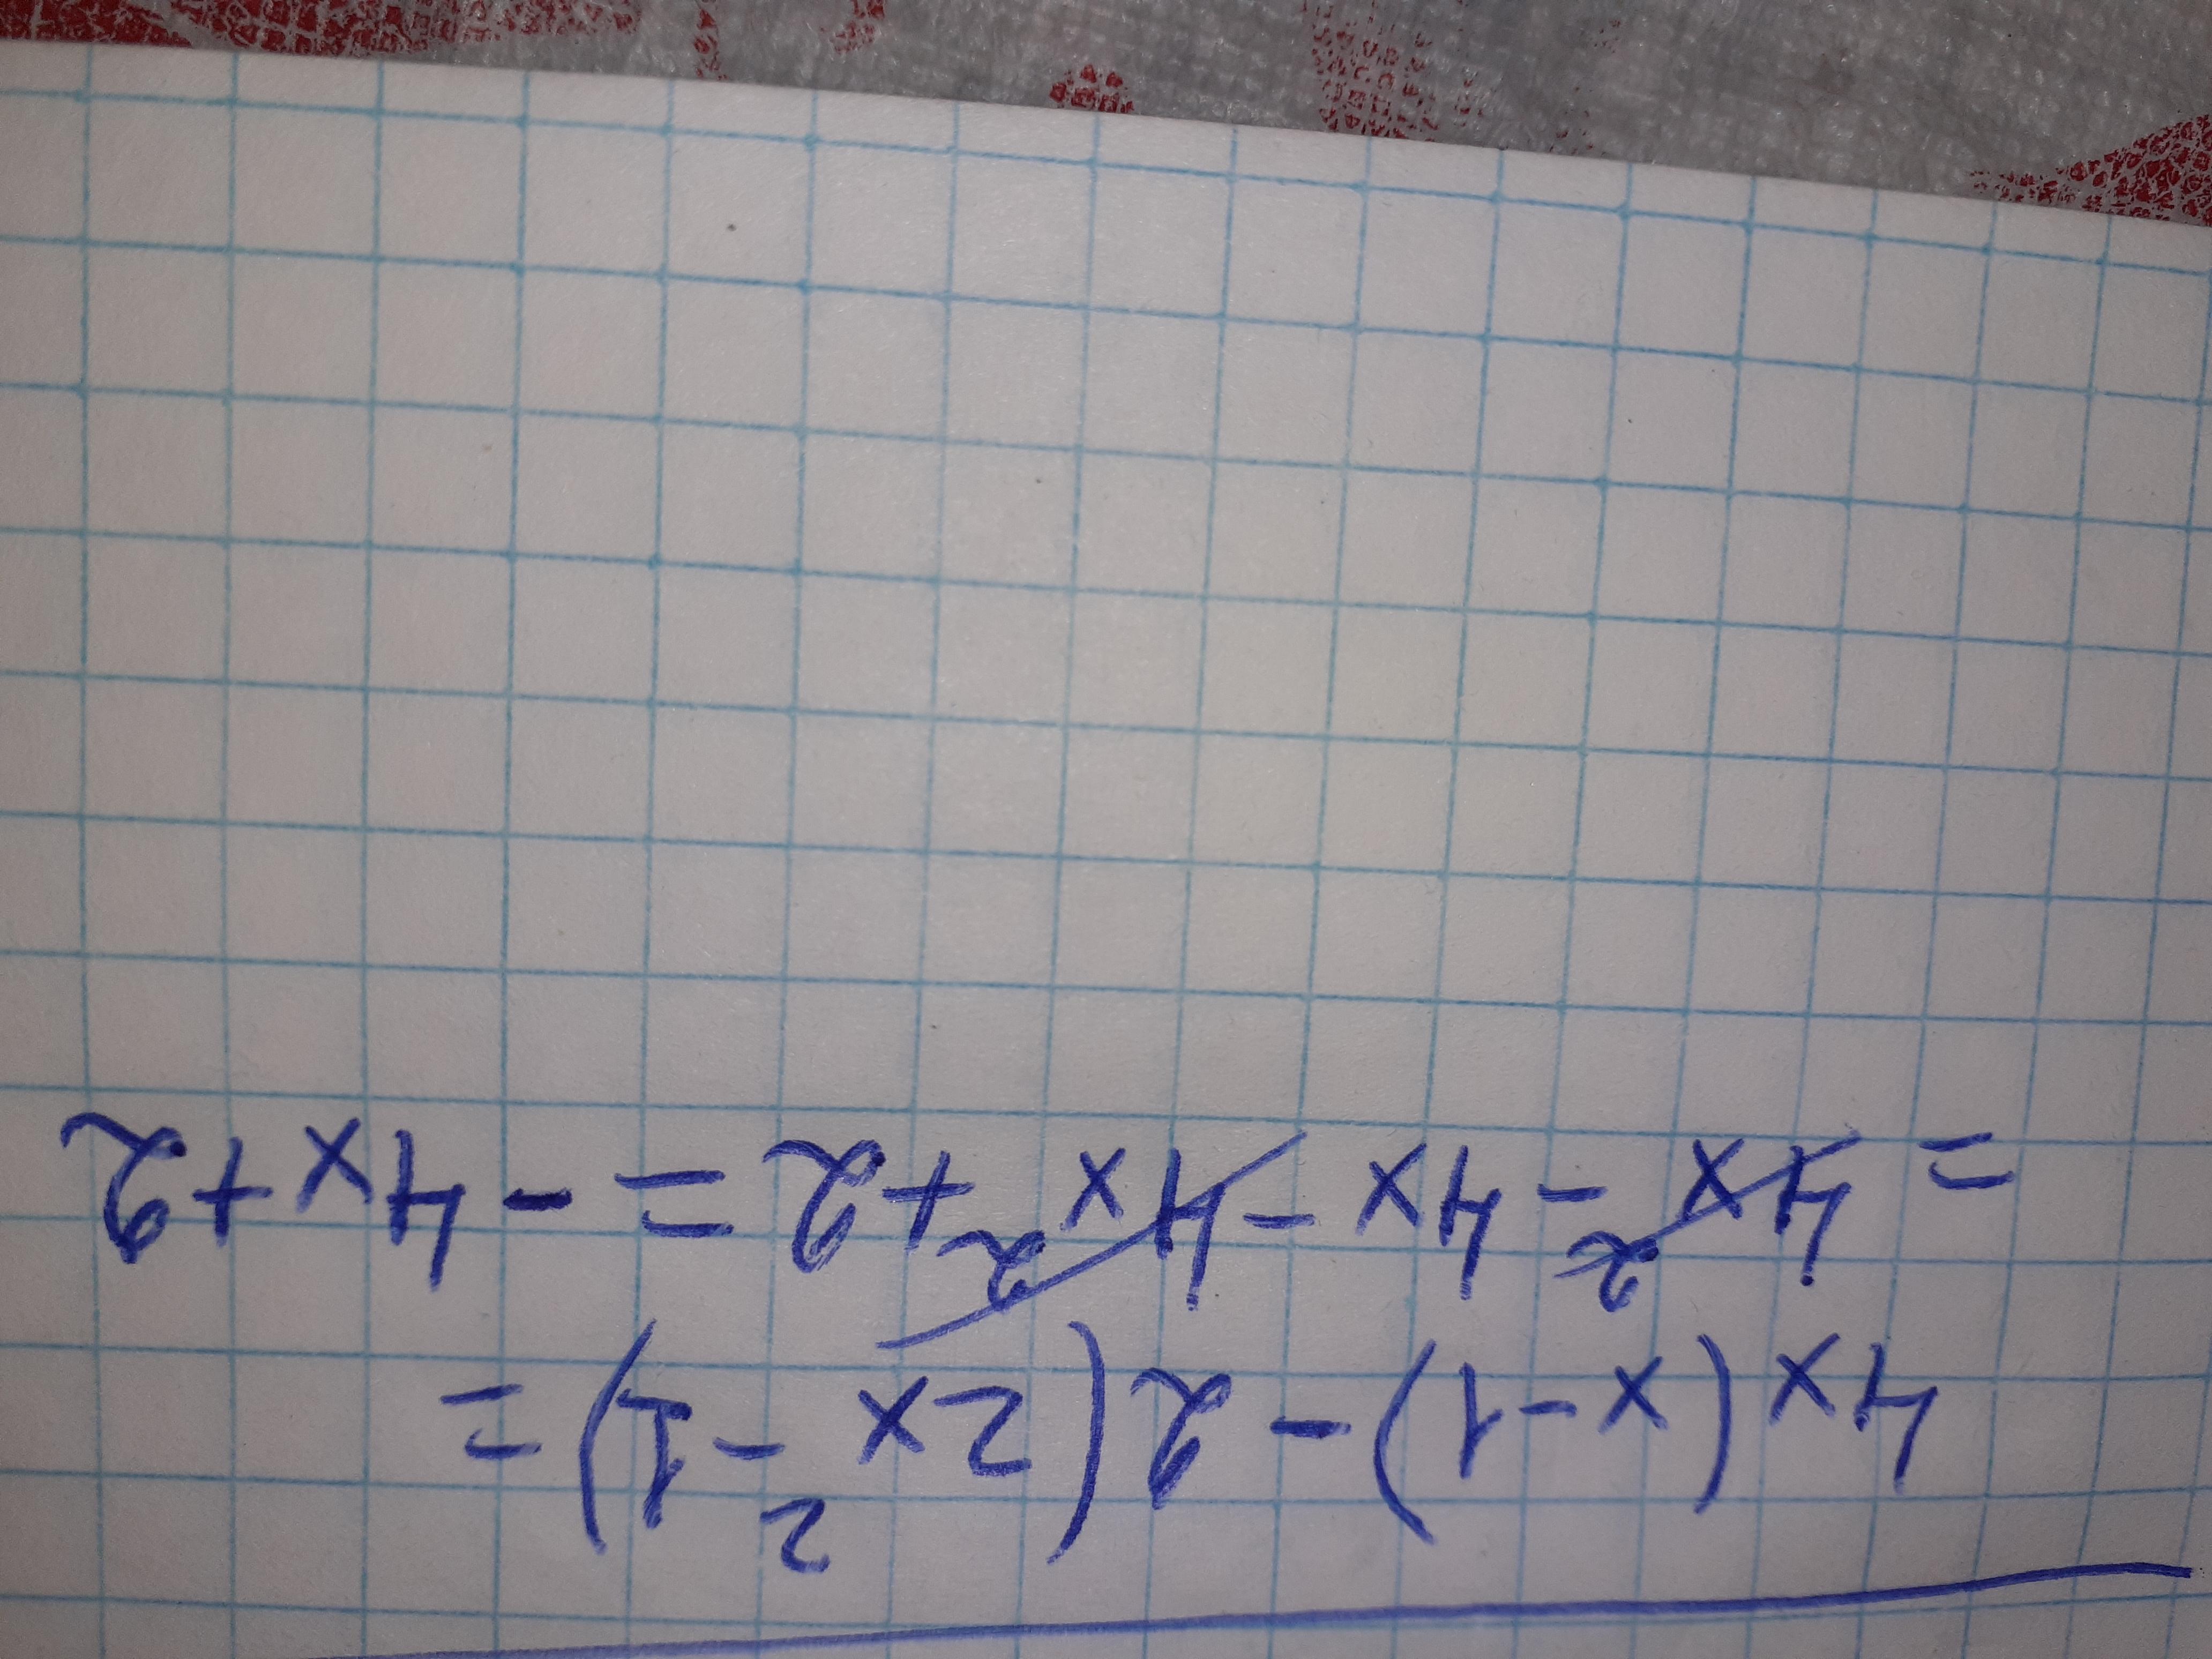 4x(x-1)-2(2x²-1)=
=4x²-4x-4x²+2=-4x+2